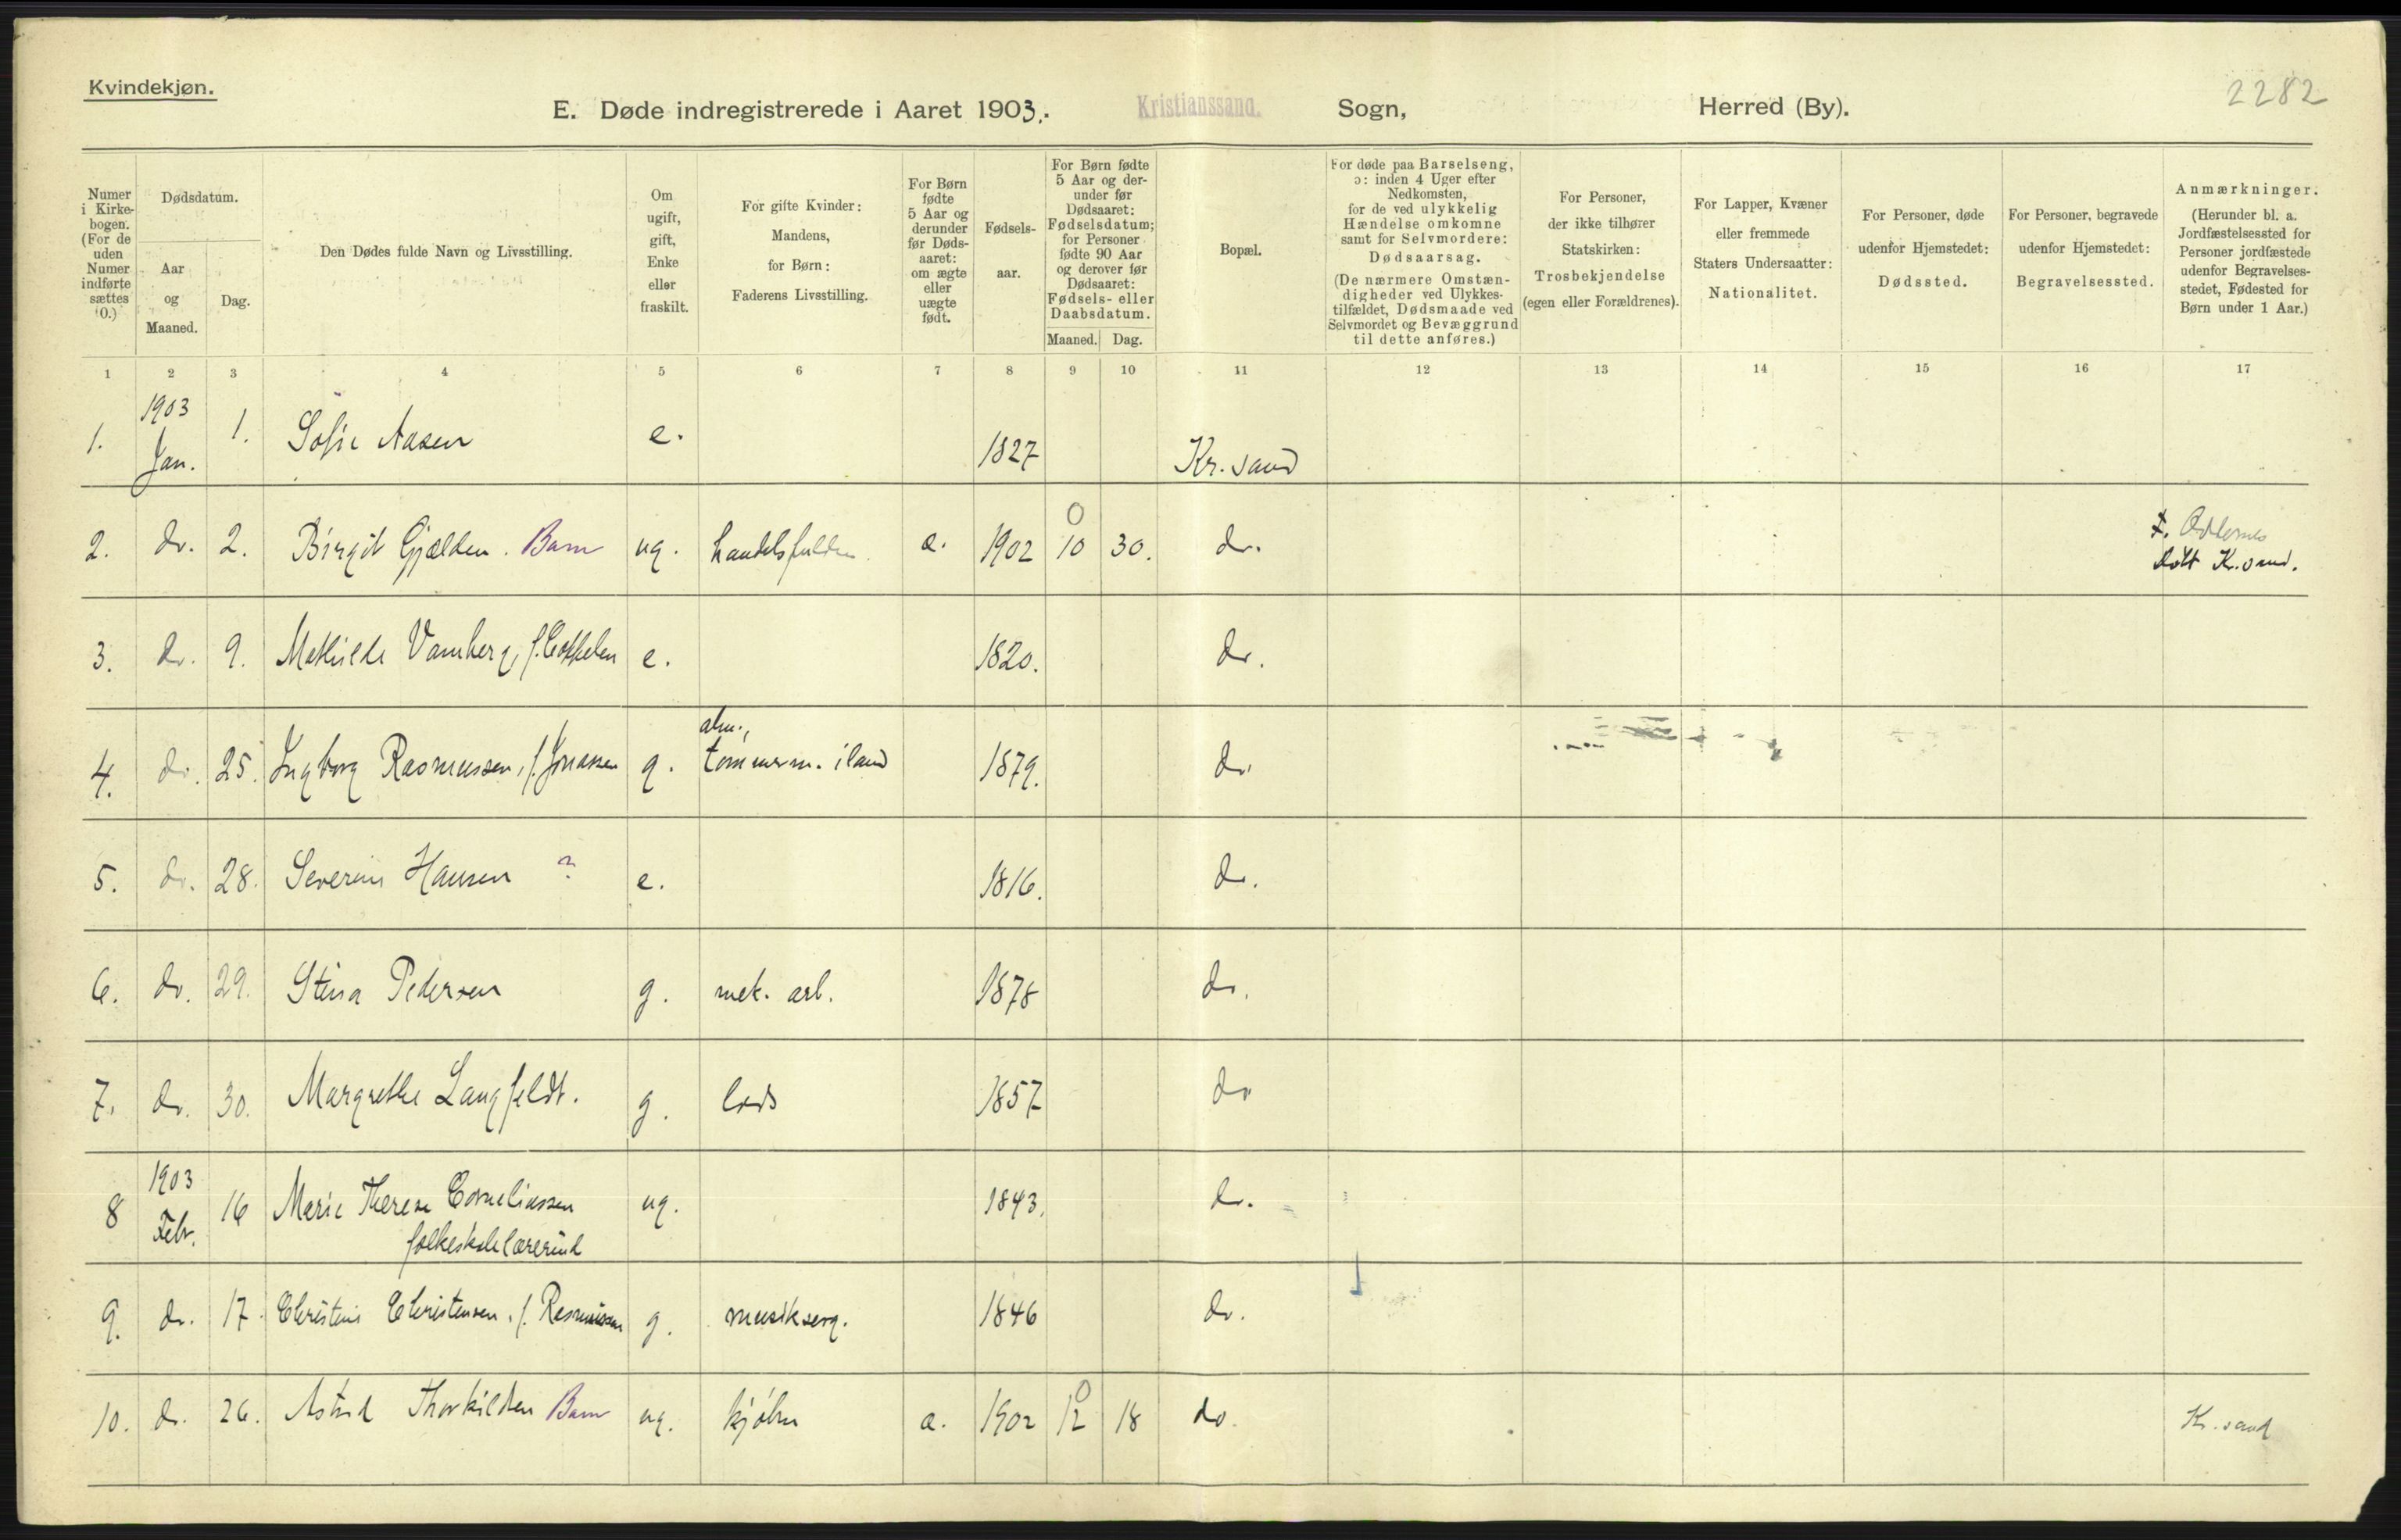 Kvindekjøn.
2282
E. Døde indregistrerede i Aaret 1903. Kristianssand. Sogn, Herred (By).
Numer i Kirkebogen. (For de uden Numer indførte sættes 0.)
Dødsdatum.
Aar og Maaned.
Dag.
Den Dødes fulde Navn og Livsstilling.
Om ugift, gift, Enke eller fraskilt.
For gifte Kvinder: Mandens, for Børn: Faderens Livsstilling.
For Børn fødte 5 Aar og derunder før Dødsaaret: om ægte eller uægte født.
Fødselsaar.
For Børn fødte 5 Aar og derunder før Dødsaaret: Fødselsdatum; for Personer fødte 90 Aar og derover før Dødsaaret: Fødsels- eller Daabsdatum.
Maaned. Dag.
Bopæl.
For døde paa Barselseng, ɔ: inden 4 Uger efter Nedkomsten, for de ved ulykkelig Hændelse omkomne samt for Selvmordere: Dødsaarsag. (De nærmere Omstændigheder ved Ulykkestilfældet, Dødsmaade ved Selvmordet og Bevæggrund til dette anføres.)
For Personer, der ikke tilhører Statskirken: Trosbekjendelse (egen eller Forældrenes).
For Lapper, Kvæner eller fremmede Staters Undersaatter: Nationalitet.
For Personer, døde udenfor Hjemstedet: Dødssted.
For Personer, begravede udenfor Hjemstedet: Begravelsessted.
Anmærkninger. (Herunder bl. a. Jordfæstelsessted for Personer jordfæstede udenfor Begravelsesstedet, Fødested for Børn under 1 Aar.)
1 2 3 4 5 6 7 8 9 10 11 12 13 14 15 16 17
1. 1903 Jan. 1. Sofie Aasen e. 1827 Kr.sand
2. do. 2. Birgit Gjælden. Barn ug. a. 1902 0 10 30. do.
Kr.sand.
3. do. 9. Mathilde Vamberg, f. e. 1820. do.
4. do. 25. Ingborg Rasmussen, f. Jonassen g. tømmerm. iland 1879. do.
5. do. 28. Severine Hansen ? e. 1816. do.
6. do. 29. Stina Pedersen g. mek. arb. 1878 do.
7. do. 30. Margrethe Langfeldt. g. lods 1857 do
8 1903 Febr. 16 Marie Therese Corneliussen ug. 1843. do.
folkeskolelærerind
9. do. 17. Christine Christensen, f. Rasmussen g. musikserg. 1846 do.
10. do. 26. Astrid Thorkildsen Barn ug. kjøbm a. 1902 0 12 18 do. Kr.sand